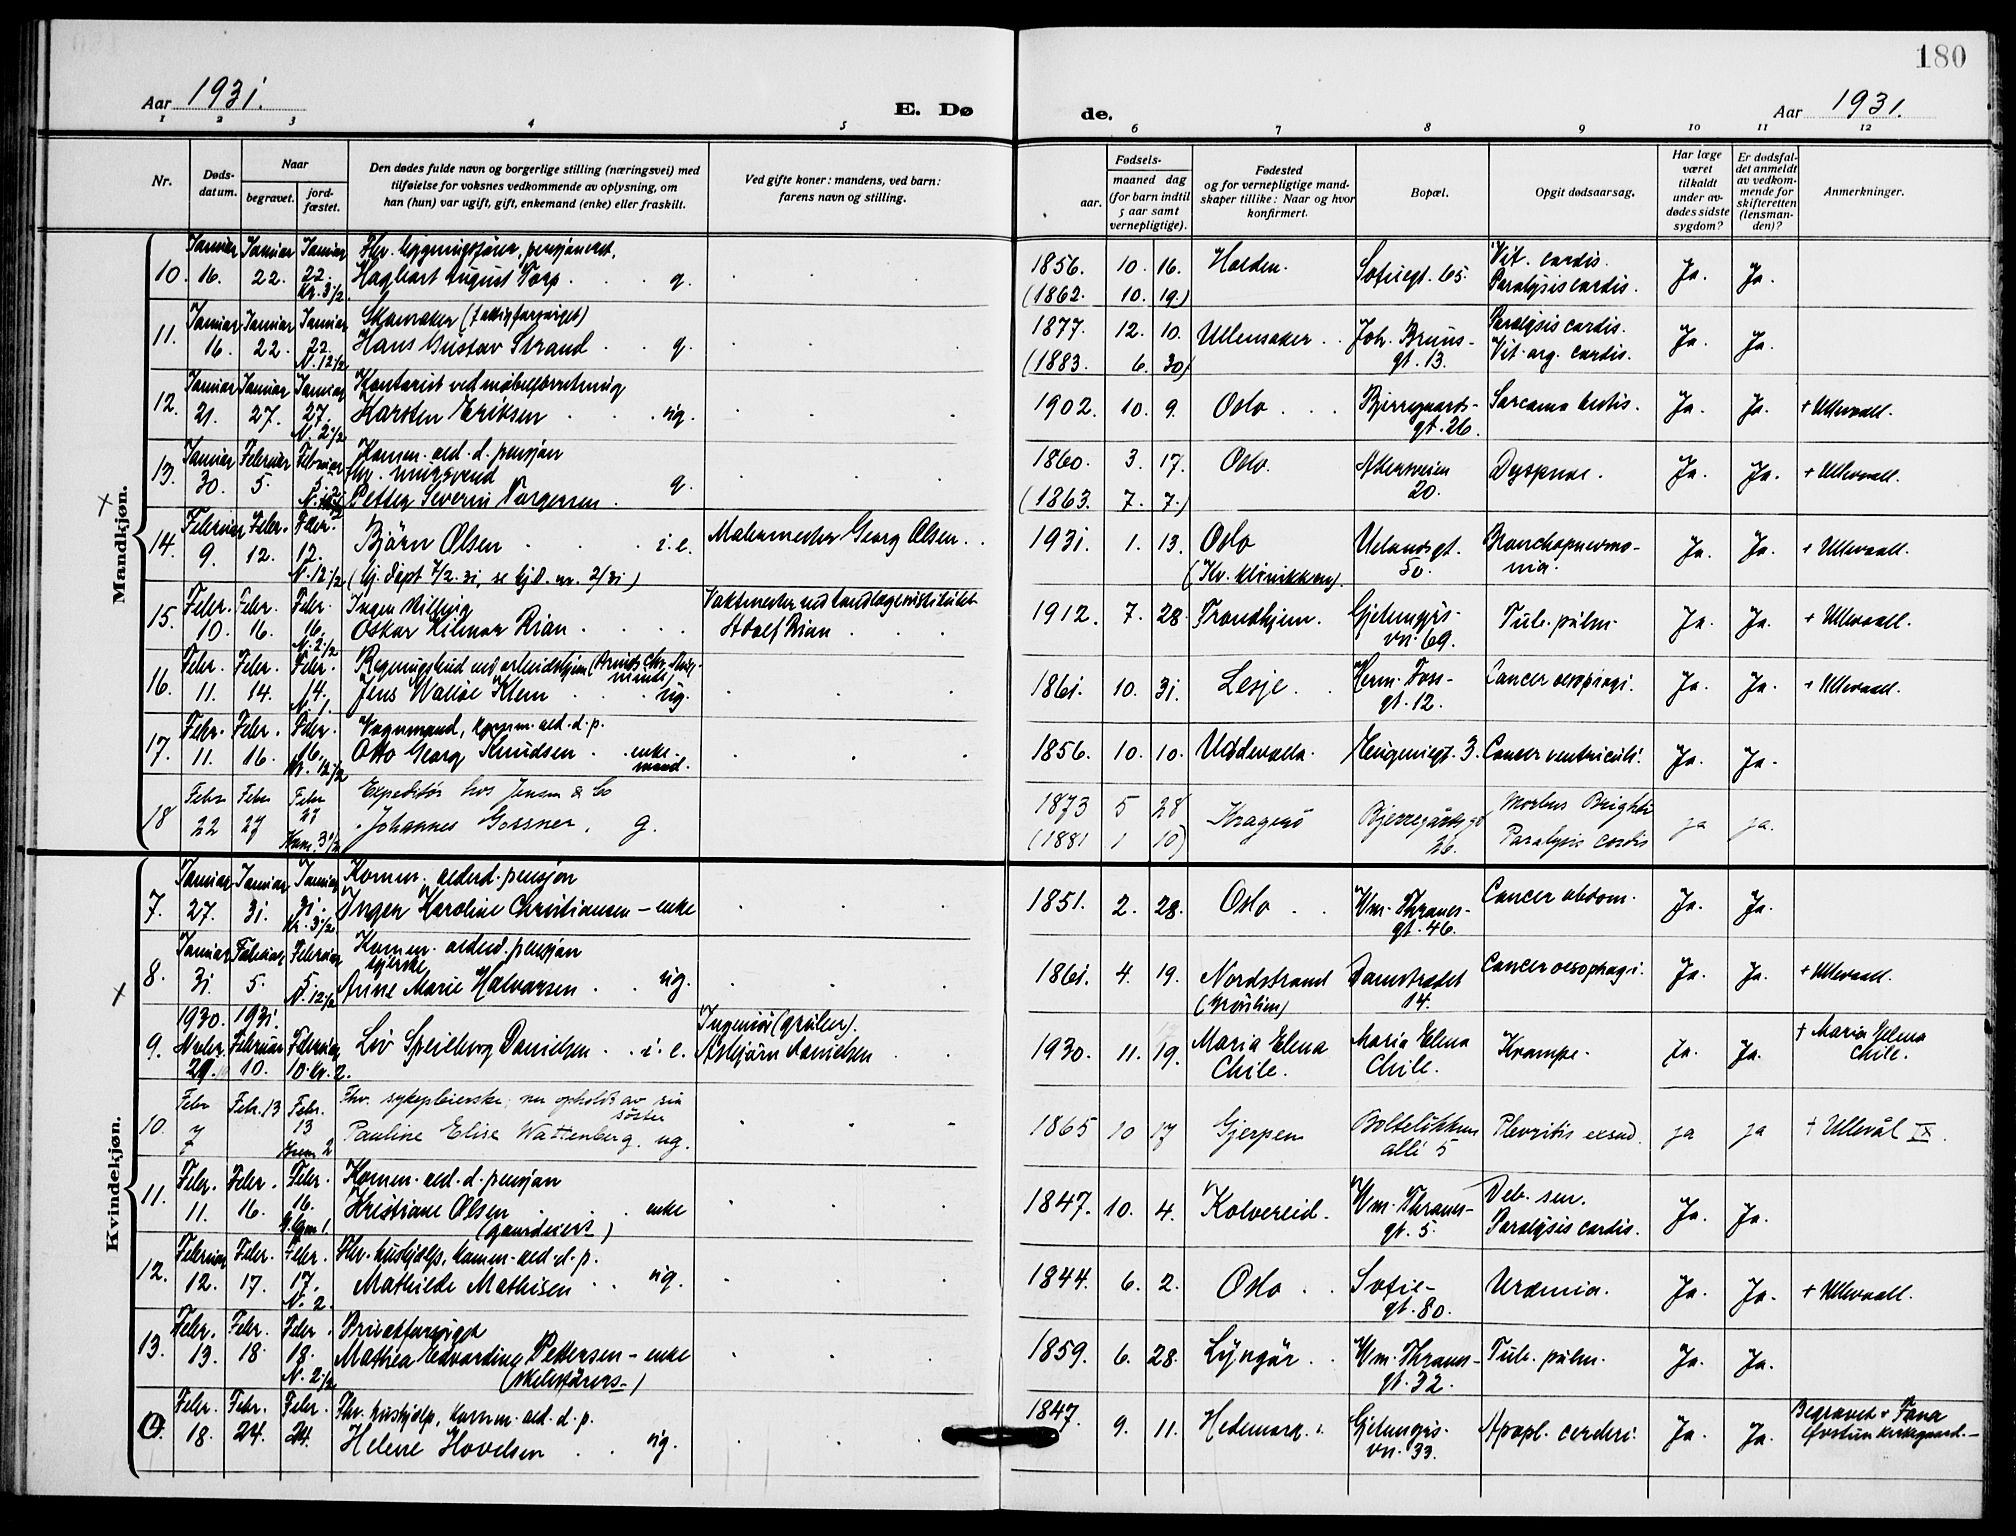 180
Aar 1931.
E. Dø
de.
Aar 1931.
1 2 3 4 5 6 7 8 9 10 11 12
Nr.
Døds-
datum.
Naar
begravet.
jord-
fæstet.
Den dødes fulde navn og borgerlige stilling (næringsvei) med
tilføielse for voksnes vedkommende av oplysning, om
han (hun) var ugift, gift, enkemand (enke) eller fraskilt.
Ved gifte koner: mandens, ved barn:
farens navn og stilling.
Fødsels-
aar.
maaned dag
(for barn indtil
5 aar samt
vernepligtige).
Fødested
og for vernepligtige mand-
skaper tillike: Naar og hvor
konfirmert.
Bopæl.
Opgit dødsaarsag.
Har læge
været
tilkaldt
under av-
dødes sidste
sygdom?
Er dødsfal-
det anmeldt
av vedkom-
mende for
skifteretten
(lensman-
den)?
Anmerkninger.
Mandkjøn.
Januar Januar Januar
10. 16. 22. 22. Hagbart August Torp g. 1856. 10. 16. Halden. Sofiegt. 65. Vit. cordis.
Kr. 3 1/2 (1862. 10. 19.) Paralysis cordis. Ja. Ja.
Januar Januar Januar Skomaker
11. 16. 22. 22. Hans Gustav Strand g. 1877. 12. 10. Ullensaker Joh. Bruns- Paralysis cordis.
N. 12 1/2 (1883. 6. 30) gt. 13. Vit. org. cordis. Ja. Ja.
Januar Januar Januar Kontorist ved møbelforretning
12. 21. 27. 27. Karsten Eriksen ug. 1902. 10. 9. Oslo Bjerregaards- Sarcoma Ja. Ja. + Ullevaall.
N. 2 1/2 gt. 26.
Januar Februar Februar Komm. ald. d. pensjon
13. 30. 5. fhv. murersvend
Petter Severin Torgersen g. 1860. 3. 17. Oslo. Akersveien Dyspnoe. Ja. Ja. + Ullevaall.
(1863. 7. 7.) 20.
Februar Febr. Febr.
14. 9. 12. 12. Bjørn Olsen i. e. Malermester Georg Olsen 1931. 1. 13. Oslo Uelandsgt. Bronchopneumo- Ja. Ja. + Ullevaall.
N. 12 1/2 (hj. døpt 7/2. 31, se hj.d. nr. 2/31) (Kv. klinikken). 50. nia.
Febr. Febr. Febr. Ingen stilling Vaktmester ved tandlægeinstitutet
15. 10. 16. 16. Oskar Hilmar Rian Adolf Rian 1912. 7. 28. Trondhjem. Gjetemyrs- Tub. pulm. Ja. Ja. + Ullevaall.
N. 2 1/2 vn. 69.
Febr. Febr. Febr.
16. 11. 14. 14. Jens Waliøe Klem ug. 1861. 10. 31. Lesje. Herm. Foss- Cancer oesophagi. Ja. Ja. + Ullevaall.
N. 1. gt. 12.
Febr. Febr. Febr. Vognmand, komm. ald. d. p.
17. 11. 16. 16. Otto Georg Knudsen enke- 1856. 10. 10. Uddevalla. Eugeniegt. 3. Cancer ventriculi. Ja. Ja.
Kr. 12 1/2 mand.
Febr Febr Febr Expeditør hos Jensen & Co
18 22 27 27 Johannes Gossner, g. 1873 5 28 Kragerø Bjerregårdsgt Morbus Brightii
Krem. 3 1/2 (1881 1 10) 26. Paralysis cordis ja ja.
Kvindekjøn.
Januar Januar Januar Komm. alderd. pensjon
7. 27. 31. 31. Inger Karoline Christiansen – enke 1851. 2. 28. Oslo Wm. Thranes- Cancer abdom. Ja. Ja.
Kr. 3 1/2 gt. 46.
Januar Februar Februar Komm. alderd. pensjon
8. 31. 5. 5. syerske
N. 12 1/2 Anne Marie Halvorsen ug. 1861. 4. 19. Nordstrand Damstrædet Cancer oesophagi. Ja. Ja. + Ullevaall.
14.
1930. 1931. Ingeniør (gruber).
9. Novbr. Februar Februar Liv Speilberg Danielsen i. e. Asbjørn Danielsen 1930. 11. 19. Maria Elena Maria Elena Krampe. Ja. Ja. + Maria Elena
29. 10. 10. Kr. 2. Chile. Chile. Chile.
Febr Febr. 13 Febr. Fhv. sykepleierske, nu opholdt av sin
søster
10. 7 13 Pauline Elise Wattenberg. ug. 1865 10 17 Gjerpen Bolteløkkens Plevritis exsud. ja ja + Ullevål IX.
Krem 2 allé 5
Febr. Febr. Febr. Komm. ald. d. pensjon
11. 11. 16. 16. Kristiane Olsen enke 1847. 10. 4. Kolvereid. Wm. Thranes- Deb. sen.
gt. 5. Paralysis cordis. Ja. Ja.
Februar Febr. Febr. Fhv. hushjelp, komm. ald. d. p.
12. 12. 17. 17. Mathilde Mathisen ug. 1844. 6. 2. Oslo Sofie- Uræmia. Ja. Ja. + Ullevaall.
N. 2. gt. 80.
Febr. Febr. Febr. Privatforsørget
13. 13. 18. 18. Mathea Edvardine Pettersen – enke 1859. 6. 28. Lyngør Wm. Thranes- Tub. pulm. Ja. Ja.
N. 2 1/2 gt. 32.
Febr. Febr. Febr. Fhv. hushjelp, komm. ald. d. p.
14. 18. 24. 24. Helene Hovelsen ug. 1847. 9. 11. Hedemark. Gjetemyrs- Apopl. cerebri. Ja. Ja. Begravet v. Fana
vn. 33. kirkegaard.